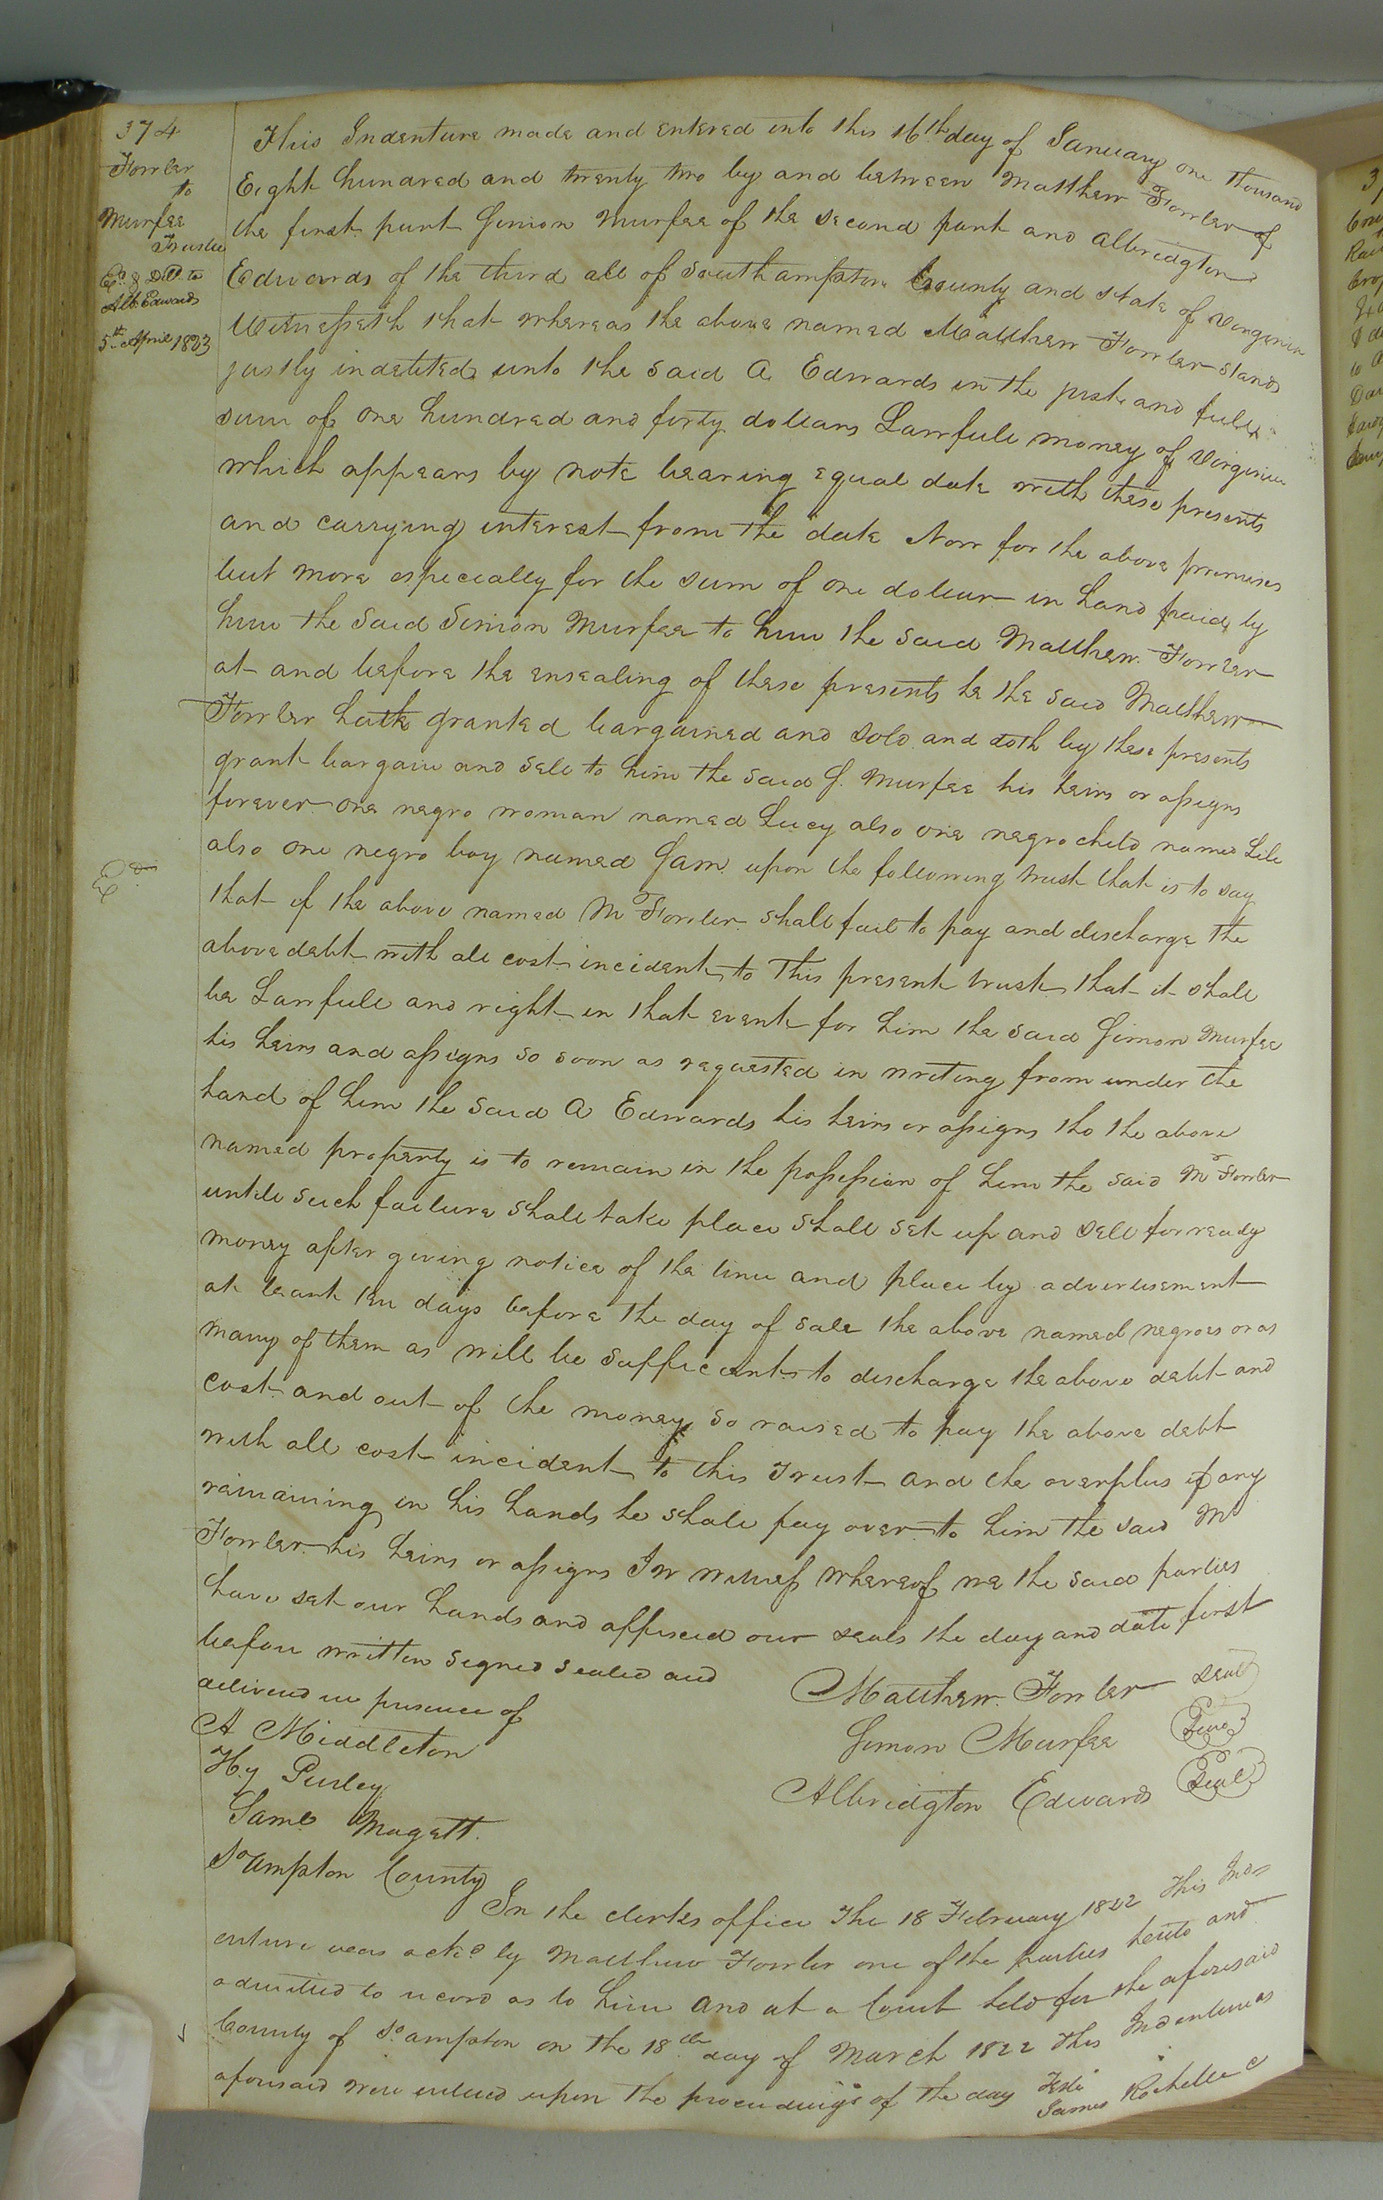 374
Fowler
to
Murfee
Trustee
Ex.d & Deld to
Alb. Edwards
5th April 1823
This Indenture made and entered into this 16th day of January one thousand
Eight hundred and twenty two by and between Matthew Fowler of
the first part Simon Murfee of the second part and Albridgton
Edwards of the third all of Southampton County and State of Virginia
Witnesseth that whereas the above named Matthew Fowler stands
justly indebted unto the said A Edwards in the just and full
sum of one hundred and forty dollars Lawfull money of Virginia
which appears by note bearing equal date with these presents
and carrying interest from the date Now for the above premises
but more especially for the sum of one dollar in hand paid by
him the said Simon Murfee to him the said Matthew Fowler
at and before the ensealing of these presents he the said Matthew
Fowler hath granted bargained and sold and doth by these presents
grant bargain and sell to him the said S. Murfee his heirs or assigns
forever one negro woman named Lucy also one negro child named Lili
also one negro boy named Sam upon the following trust that is to say
that if the above named M Fowler shall fail to pay and discharge the
above debt with all cost incident to this present trust that it shall
be Lawfull and right in that event for him the said Simon Murfee
his heirs and assigns so soon as requested in writing from under the
hand of him the said A Edwards his heirs or assigns tho the above
named property is to remain in the possession of him the said M Fowler
untill such failure shall take place shall set up and sell for ready
money after giving notice of the time and place by advertisement
at least ten days before the day of sale the above named negroes or as
many of them as will be sufficient to discharge the above debt and
cost and out of the money so raised to pay the above debt
with all cost incident to this Trust and the overplus if any
remaining in his hands he shall pay over to him the said M
Fowler his heirs or assigns In witness whereof we the said parties
have set our hands and affixed our seals the day and date first
before written signed sealed and
delivered in presence of
A Middleton
Hy Purley
Saml Magett.
So ampton County
Matthew Fowler seal
Simon Murfee Seal
Albridgton Edwards Seal
In the clerks office the 18 February 1822 This Ind-
enture was ackd by Matthew Fowler one of the parties hereto and
admitted to record as to him and at a Court held for the aforesaid
County of So ampton on the 18th day of March 1822 This Indenture as
aforesaid were entered upon the proceedings of the day Teste
James Rochelle C